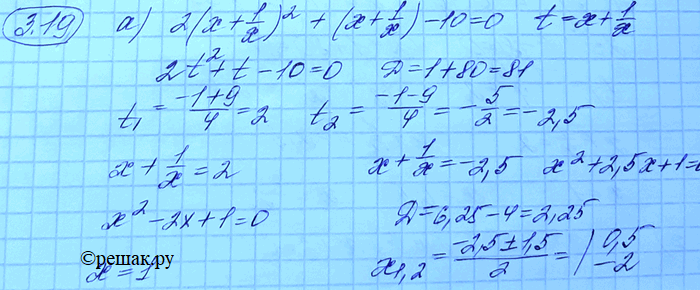 3.19 а) 2(x+1/x)² + (x+1/x) -10=0 t=x+1/x
2t²+t-10=0 D=1+80=81
t₁ = (-1+9)/4 = 2 t₂ = (-1-9)/4 = -5/2 = -2,5
x+1/x=2 x+1/x=-2,5 x²+2,5x+1=0
x²-2x+1=0 D=6,25-4=2,25
x=1 x₁,₂ = (-2,5±1,5)/2 = | 0,5
-2
©решак.ру